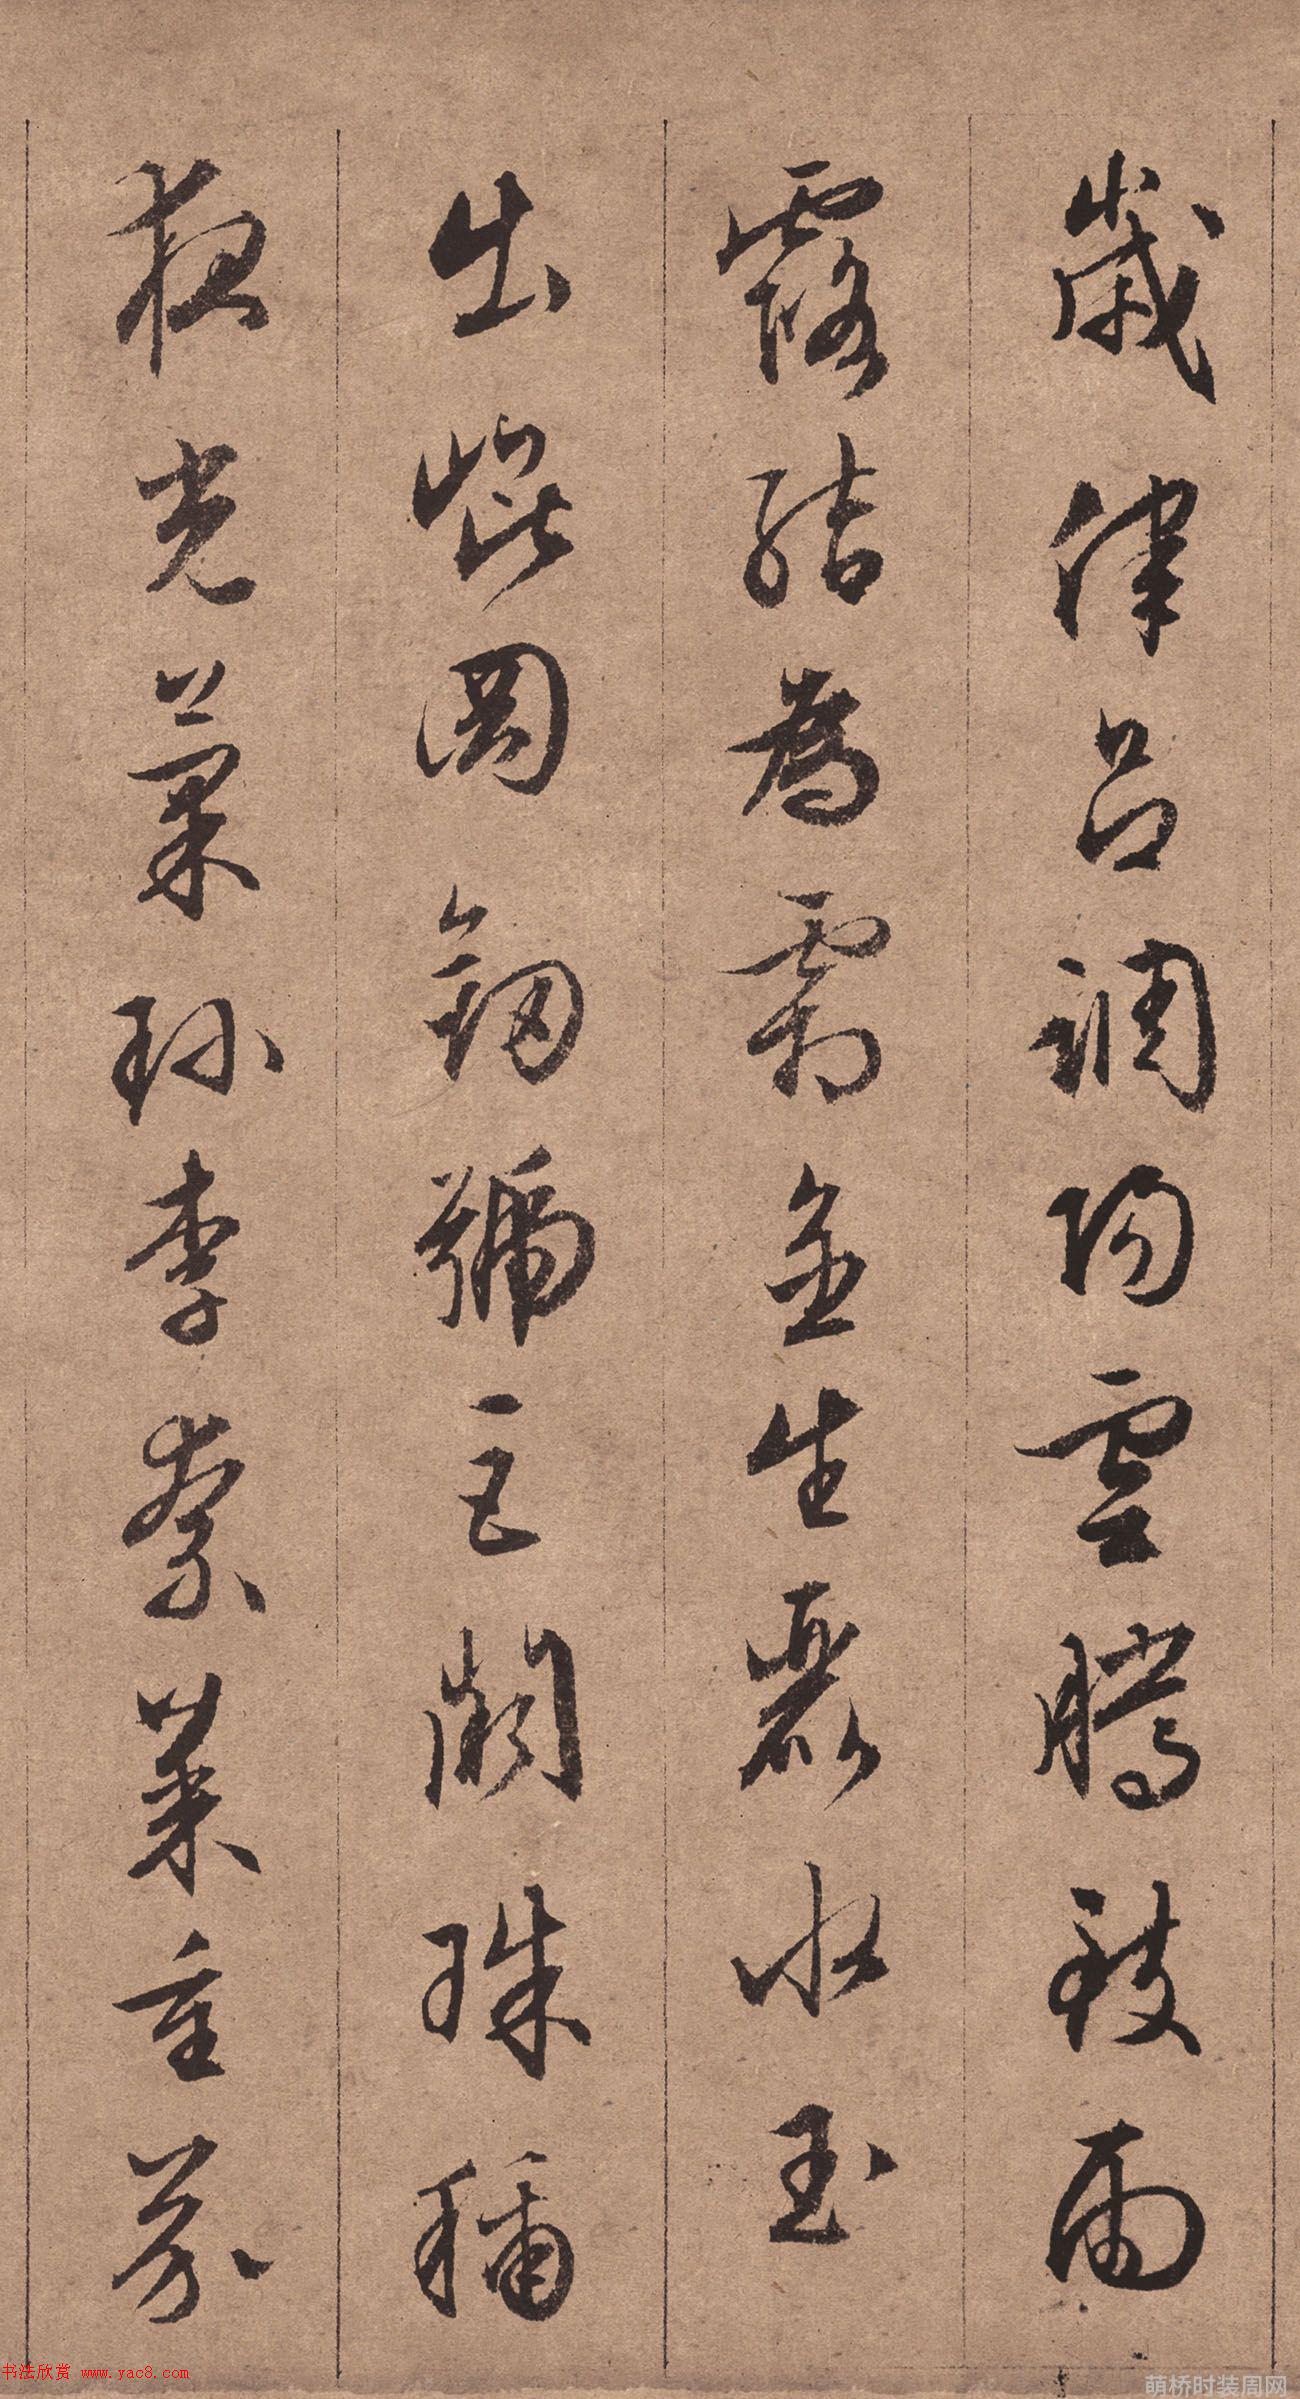 歲律呂調陽雲騰致雨
露結為霜金生麗水玉
出崐岡劔號巨闕珠稱
夜光菓珎李柰菜重芥
书法欣赏 www.yac8.com
萌桥时装周网